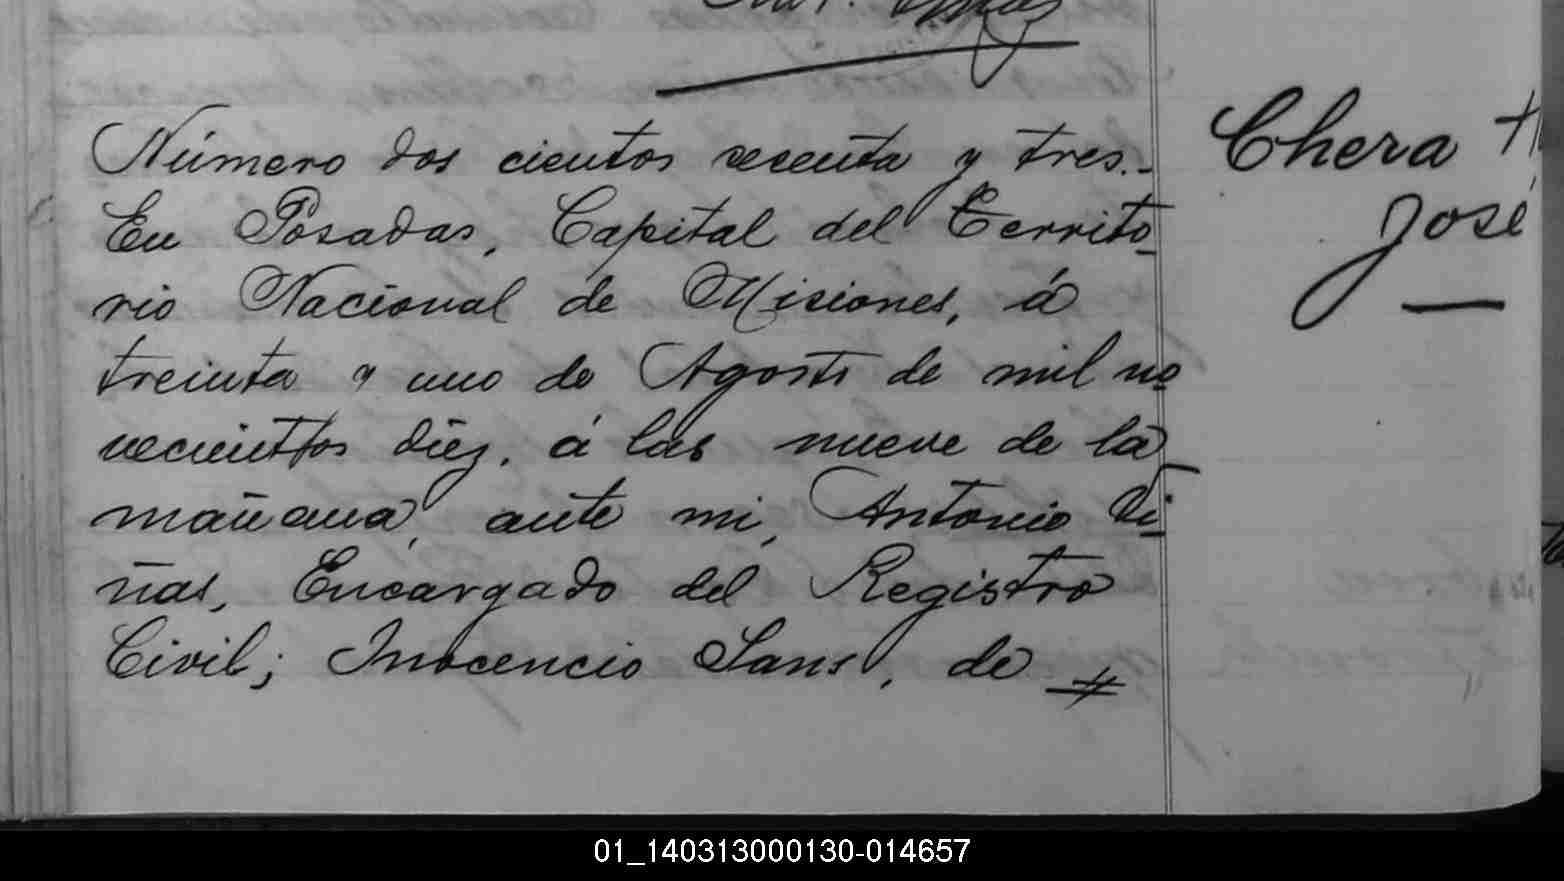 Número dos cientos secenta y tres.-
En Posadas, Capital del Territo-
rio Nacional de Misiones, á
treinta y uno de Agosto de mil no-
vecientos diez, á las nueve de la
mañana, ante mi, Antonio Vi-
ñas, Encargado del Registro
Civil; Inocencio Sans, de #
Chera
José
01_140313000130-014657